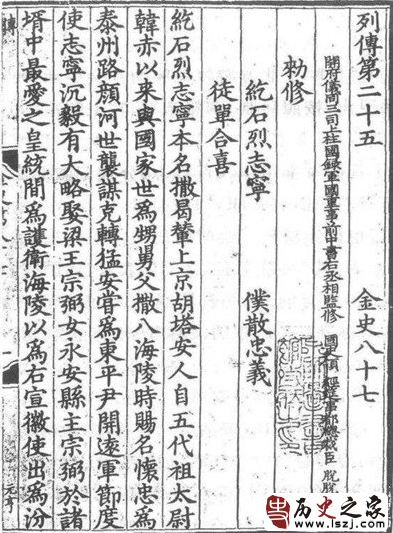 列傳第二十五 金史八十七
開府儀同三司上柱國錄軍國重事前中書右丞相監修 國史領 經筵事都總裁臣 脫脫
勅修
紇石烈志寧 僕散忠義
徒單合喜
紇石烈志寧本名撒曷輦上京胡塔安人自五代祖太尉
韓赤以來與國家世爲甥舅父撒八海陵時賜名懷忠爲
泰州路顔河世襲謀克轉猛安嘗爲東平尹開遠軍節度
使志寧沉毅有大略娶梁王宗弼女永安縣主宗弼於諸
壻中最愛之皇統間爲護衛海陵以爲右宣徽使出爲汾
历史之家
www.lszj.com